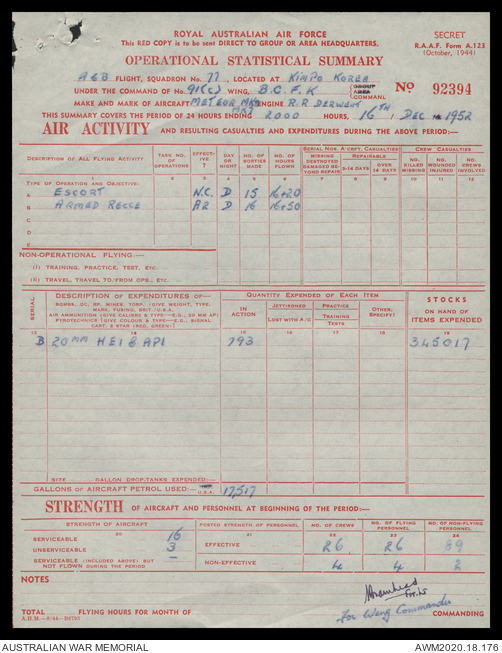 ROYAL AUSTRALIAN AIR FORCE
This RED COPY is to be sent DIRECT TO GROUP OR AREA HEADQUARTERS.
SECRET
R.A.A.F. Form A.123
(October, 1944)
OPERATIONAL STATISTICAL SUMMARY
A & B FLIGHT, SQUADRON No. 77, LOCATED AT KIMPO KOREA
UNDER THE COMMAND OF No. 91(C) WING, B.C.F.K GROUP AREA COMMAND
No 92394
MAKE AND MARK OF AIRCRAFT METEOR ENGINE R.R DERWENT
THIS SUMMARY COVERS THE PERIOD OF 24 HOURS ENDING 2000 HOURS, 16TH / DEC 1952
AIR ACTIVITY AND RESULTING CASUALTIES AND EXPENDITURES DURING THE ABOVE PERIOD:—
DESCRIPTION OF ALL FLYING ACTIVITY
TASK NO. OF OPERATIONS
EFFECTIVE ?
DAY OR NIGHT
NO. OF SORTIES MADE
NO. OF HOURS FLOWN
SERIAL NOS. A/COPY, CASUALTIES
MISSING DESTROYED DAMAGED BEYOND REPAIR
REPAIRABLE
2-14 DAYS
OVER 14 DAYS
CREW CASUALTIES
NO. KILLED MISSING
NO. WOUNDED INJURED
NO. CREWS INVOLVED
1 2 3 4 5 6 7 8 9 10 11 12
TYPE OF OPERATION AND OBJECTIVE:
A ESCORT N.C. D 15 16+20
B ARMED RECCE AR D 16 16+50
C
D
E
NON-OPERATIONAL FLYING:—
(I) TRAINING, PRACTICE, TEST, ETC.
(II) TRAVEL, TRAVEL TO/FROM OPS., ETC.
SERIAL
DESCRIPTION OF EXPENDITURES OF—
BOMBS, DC, RP, MINES, TORP. (GIVE WEIGHT, TYPE, MARK, FUSING, BRIT./U.S.A.
AIR AMMUNITION (GIVE CALIBRE & TYPE—E.G., 20 MM AP)
PYROTECHNICS (GIVE COLOUR & TYPE—E.G., SIGNAL CART. 2 STAR (RED, GREEN)
QUANTITY EXPENDED OF EACH ITEM
IN ACTION
JETTISONED
LOST WITH A/C
PRACTICE
TRAINING
TESTS
OTHER: SPECIFY!
STOCKS
ON HAND OF ITEMS EXPENDED
13 14 15 16 17 18 19
B 20MM HEI & API 793 345017
SIZE GALLON DROP-TANKS EXPENDED:—
GALLONS OF AIRCRAFT PETROL USED:— U.S.A. 17517
STRENGTH OF AIRCRAFT AND PERSONNEL AT BEGINNING OF THE PERIOD:—
STRENGTH OF AIRCRAFT
POSTED STRENGTH OF PERSONNEL
NO. OF CREWS
NO. OF FLYING PERSONNEL
NO. OF NON-FLYING PERSONNEL
20 21 22 23 24
SERVICEABLE 16
UNSERVICEABLE 3
SERVICEABLE (INCLUDED ABOVE) BUT NOT FLOWN DURING THE PERIOD —
EFFECTIVE — 26 26 89
NON-EFFECTIVE 4 4 2
NOTES
For Wing Commander
COMMANDING
TOTAL FLYING HOURS FOR MONTH OF
AUSTRALIAN WAR MEMORIAL
AWM2020.18.176